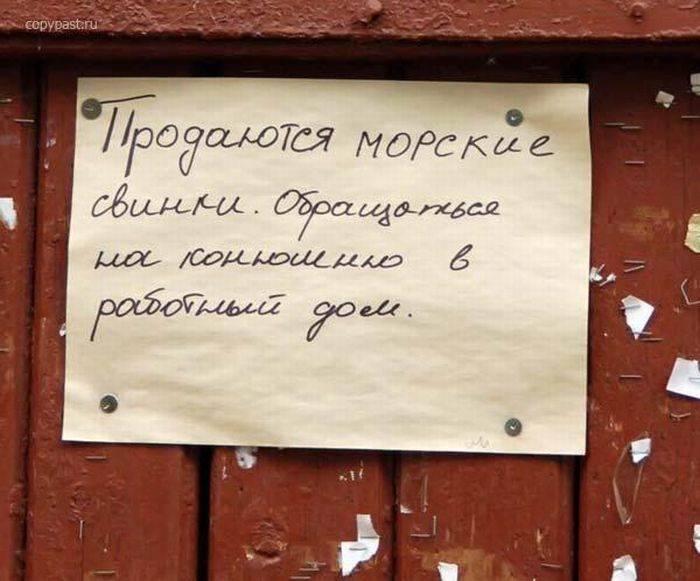 copypast.ru
Продаются морские
свинки. Обращаться
на конюшню в
работный дом.